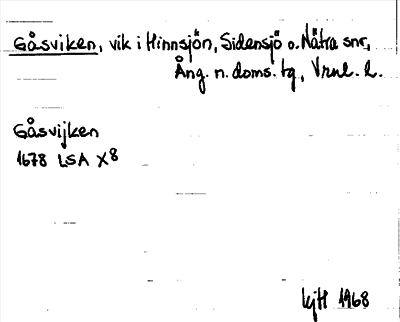 Gåsviken, vik i Hinnsjön, Sidensjö o. Nätra snr,
Ång. n. doms. tg, Vrnl. l.
Gåsvijken
1678 LSA X8
1968